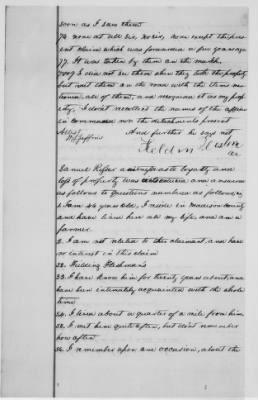 soon as I saw them
76. None at all sir, no sir, none except the pres
ent claim which was forwarded a few years ago
77. It was taken by them on the march.
78 & 79 I did not see them when they took the property
but met them in the road with the items men
tioned all of them, and recognized it as my prop
erty, I don't recollect the names of the officers
in command nor the detachments present
Attest And further he says not
Samuel Rifser a witness as to loyalty and
loss of property was and answers
as follows to questions numbered as follows viz
1. I am 46 years old, I reside in Madison county
and have lived here all my life, and am a
farmer
2. I am not related to the claimant, and have
no interest in this claim
32. Fielding
33. I have known him for twenty years about and
have been intimately acquainted with the whole
time
34. I live about a quarter of a mile from him
35. I met him quite often, but don't remember
how often
36. I remember upon one occasion, about the